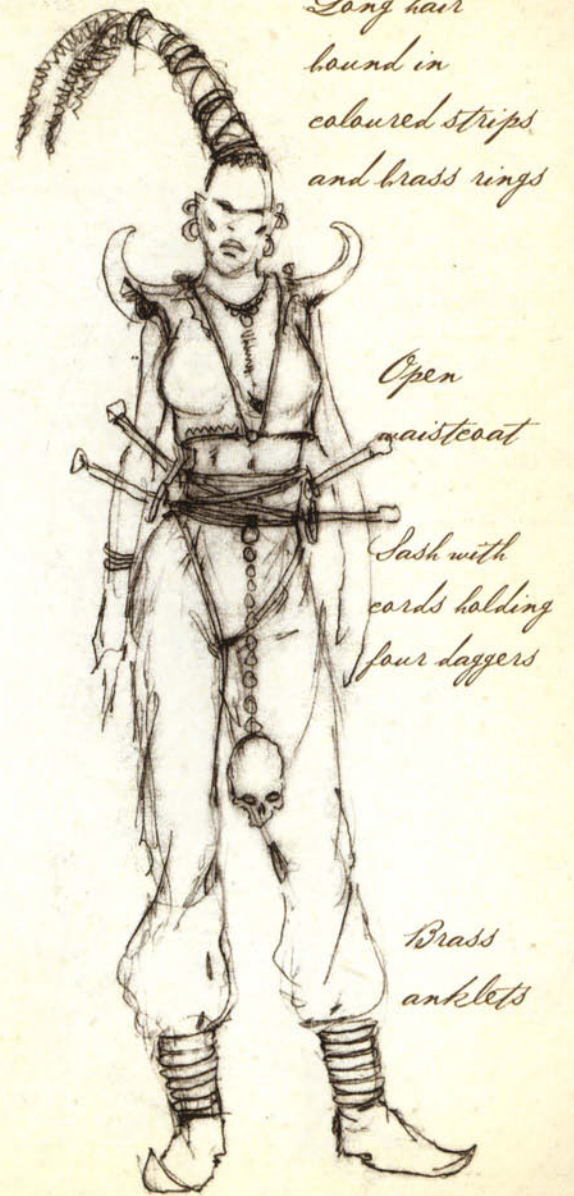 Long hair
bound in
coloured strips
and brass rings
Open
waistcoat
Sash with
cords holding
four daggers
Brass
anklets